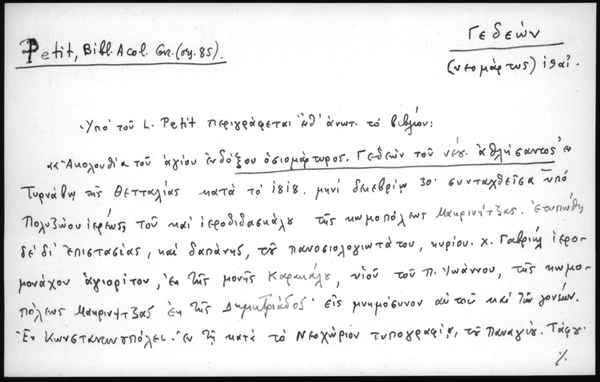 Petit, Bibl. Acol. Gr. (σχ. 85).
Γεδεών
(νεομάρτυς)
Ὑπὸ τοῦ L. Petit περιγράφεται ἐνθ' ἀνωτ. τὸ βιβλίον:
«Ἀκολουθία τοῦ ἁγίου ἐνδόξου ὁσιομάρτυρος Γεδεὼν τοῦ νέου ἀθλήσαντος ἐν
Τυρνάβῳ τῆς Θετταλίας κατὰ τὸ 1818 μηνὶ δεκεβρίῳ 30 συνταχθεῖσα ὑπὸ
Πολυζώου ἱερέως τοῦ καὶ ἱεροδιδασκάλου τῆς κωμοπόλεως Μακρινήτζας. ἐτυπώθη
δὲ δι' ἐπιστασίας, καὶ δαπάνης, τοῦ πανοσιολογιωτάτου, κυρίου χ. Γαβριὴλ ἱερο-
μονάχου ἁγιορίτου, ἐκ τῆς μονῆς Καρακάλου, υἱοῦ τοῦ π. Ἰωάννου, τῆς κωμο-
πόλεως Μακρινήτζας ἐκ τῆς Δημητριάδος εἰς μνημόσυνον αὐτοῦ καὶ τῶν γονέων.
Ἐν Κωνσταντινουπόλει. Ἐν τῇ κατὰ τὸ Νεοχώριον τυπογραφίᾳ, τοῦ Παναγίου Τάφου.
%.